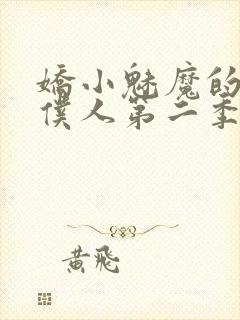 嬌小魅魔的
僕人第二季
黃飛